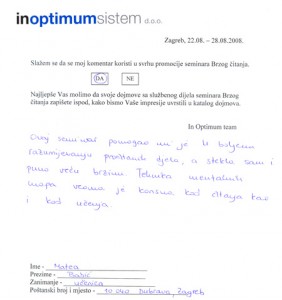 inoptimumsistem d.o.o.
Zagreb, 22.08. – 28.08.2008.
Slažem se da se moj komentar koristi u svrhu promocije seminara Brzog čitanja.
DA NE
Najljepše Vas molimo da svoje dojmove sa službenog dijela seminara Brzog
čitanja zapišete ispod, kako bismo Vaše impresije uvrstili u katalog dojmova.
In Optimum team
Ovaj seminar pomogao mi je u boljem
razumijevanju pročitanih djela, a stekla sam i
puno veću brzinu. Tehnika mentalnih
mapa veoma je korisna kod čitanja kao
i kod učenja.
Ime - Matea
Prezime - Babić
Zanimanje - učenica
Poštanski broj i mjesto - 10 040 Dubrava, Zagreb